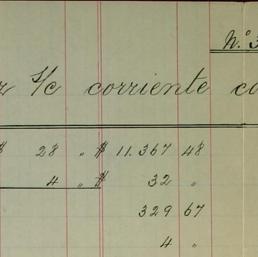 N.º 3
r S/c corriente co
$ 28 „ $ 11.367 48
4 „ $ 32 „
329 67
4 „